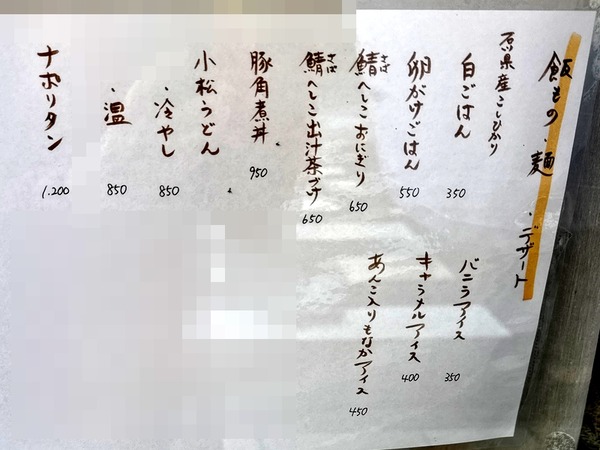 飯もの・麺・デザート
石川県産こしひかり
白ごはん 350
卵がけごはん 550
鯖へしこおにぎり 650
さば
鯖へしこ出汁茶づけ 650
さば
豚角煮丼 950
小松うどん
・冷やし 850
・温 850
ナポリタン 1.200
バニラアイス 350
キャラメルアイス 400
あんこ入りもなかアイス 450